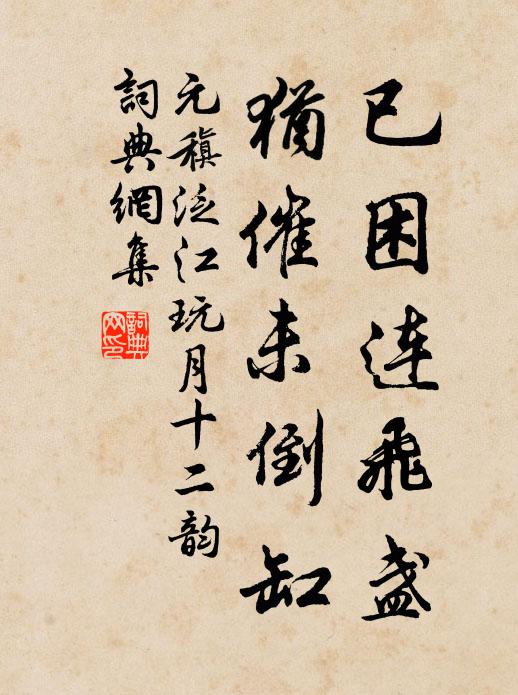 已困連飛盞
猶催未倒缸
元稹泛江玩月十二韵
詞典網集
詞典網印